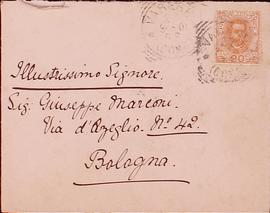 Illustrissimo Signore.
Sig. Giuseppe Marconi.
Via d'Azeglio. No 42.
Bologna.
20